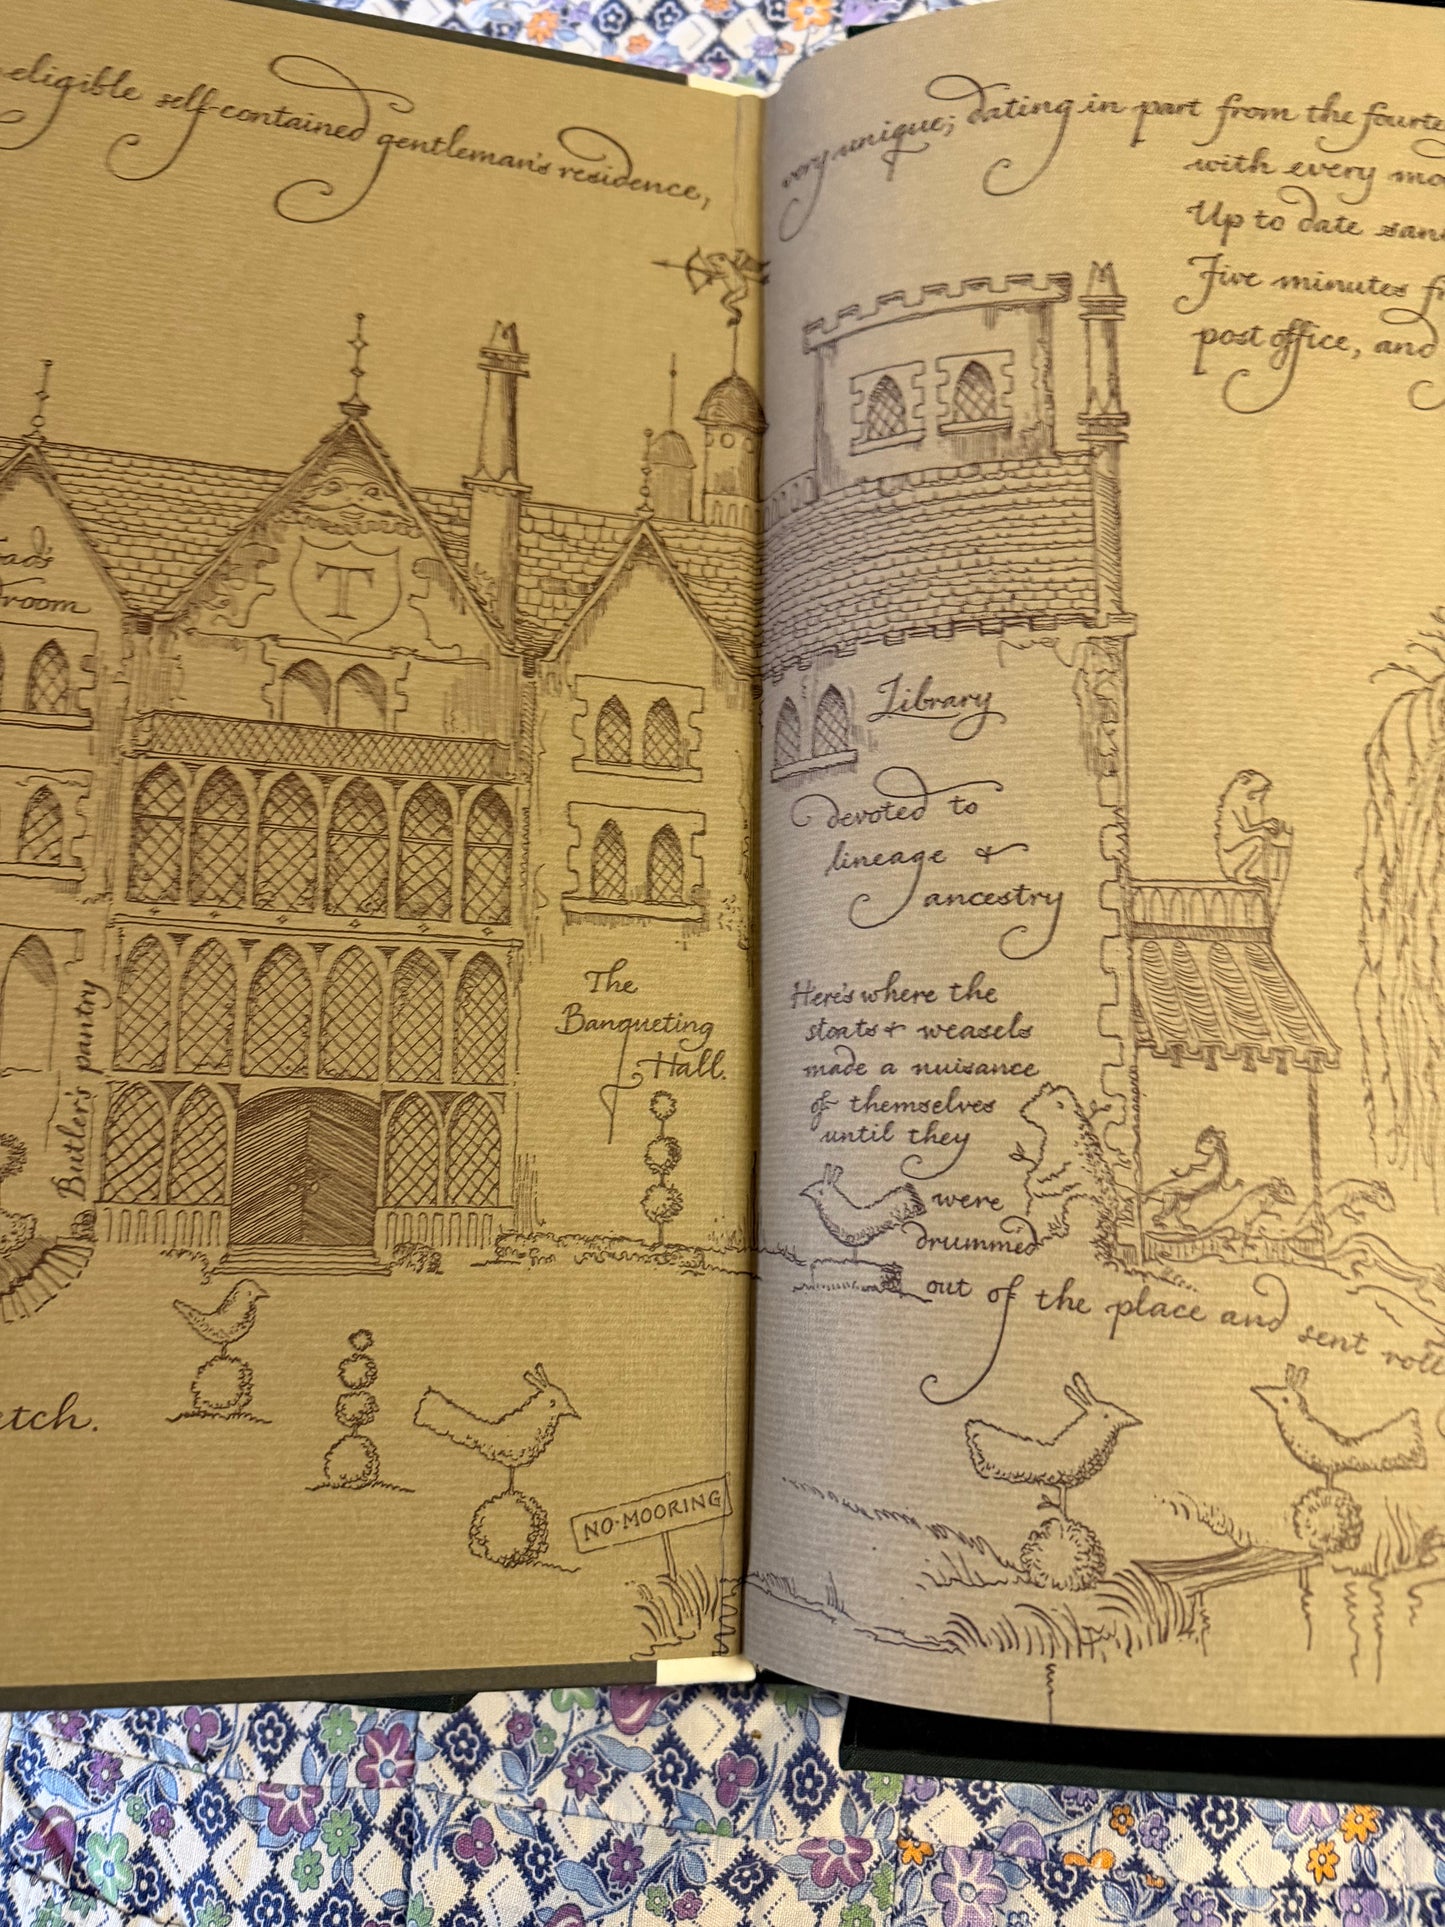 eligible self-contained gentleman's residence,
very unique; dating in part from the fourte
with every mo
Up to date sani
Five minutes fr
post office, and
oad's
droom
T
Butler's pantry
The
Banqueting
Hall.
etch.
NO·MOORING
Library
devoted to
lineage &
ancestry
Here's where the
stoats & weasels
made a nuisance
of themselves
until they
were
drummed
out of the place and sent roll